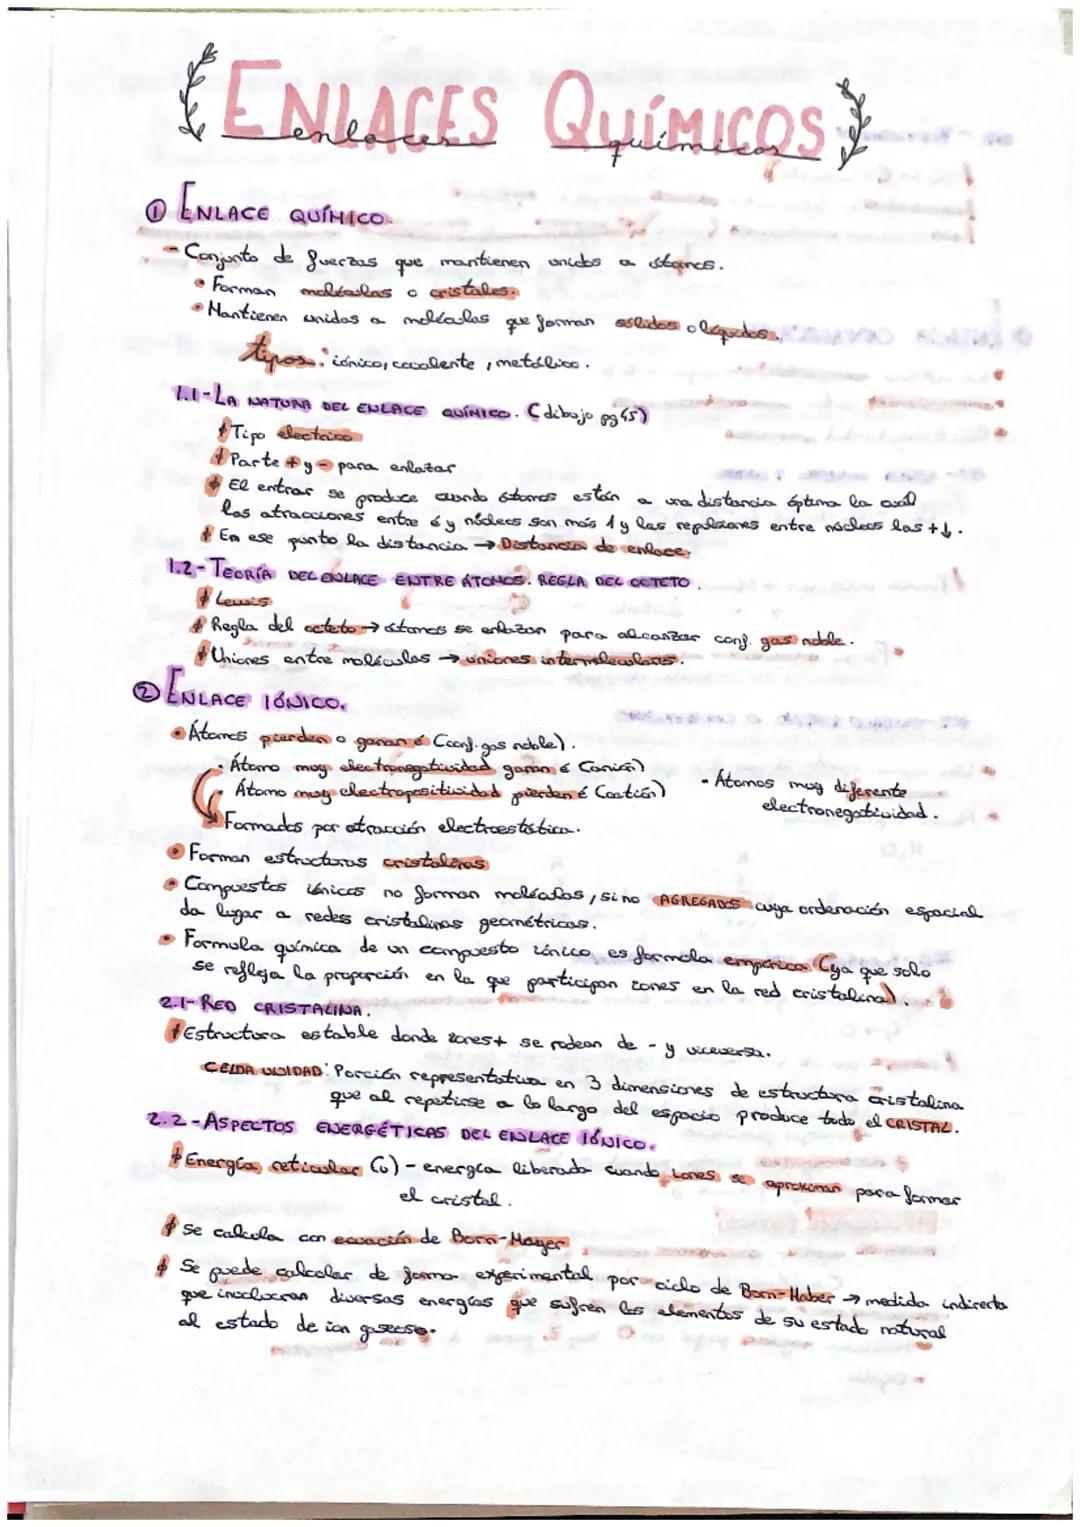 ENLACES QUÍMICOS
enlaces químicos
① ENLACE QUÍMICO.
- Conjunto de fuerzas que mantienen unidos a átomos.
• Forman moléculas o cristales.
• Mantienen unidos a moléculas que forman sólidos o líquidos.
tipos: iónico, covalente, metálico.
1.1-LA NATURA DEL ENLACE QUÍMICO. (dibujo pg 45)
Tipo electrico
Parte + y - para enlazar
El entrar se produce cuando átomos están a una distancia óptima la cuál
las atracciones entre é y núcleos son más ↑ y las repulsiones entre núcleos las + ↓.
En ese punto la distancia → Distancia de enlace.
1.2-TEORÍA DEL ENLACE ENTRE ÁTOMOS. REGLA DEL OCTETO.
Lewis
Regla del octeto → átomos se enlazan para alcanzar conf. gas noble.
Uniones entre moléculas → uniones intermoleculares.
② ENLACE IÓNICO.
• Átomos pierden o ganan é (conf. gas noble).
• Átomo muy electronegatividad ganan é (anión)
• Átomo muy electropositividad pierden é (catión)
- Átomos muy diferente
electronegatividad.
Formados por atracción electroestática.
• Forman estructuras cristalinas
• Compuestos iónicos no forman moléculas, sino AGREGADOS cuya ordenación espacial
da lugar a redes cristalinas geométricas.
• Formula química de un compuesto iónico es formula empírica (ya que solo
se refleja la proporción en la que participan iones en la red cristalina).
2.1-RED CRISTALINA.
Estructura estable donde iones + se rodean de - y viceversa.
CELDA UNIDAD: Porción representativa en 3 dimensiones de estructura cristalina
que al repetirse a lo largo del espacio produce todo el CRISTAL.
2.2-ASPECTOS ENERGÉTICAS DEL ENLACE IÓNICO.
Energía reticular (u) - energía liberada cuando iones se aproximan para formar
el cristal.
Se calcula con ecuación de Born-Mayer
Se puede calcular de forma experimental por ciclo de Born-Haber → medida indirecta
que involucran diversas energías que sufren los elementos de su estado natural
al estado de ion gaseoso.